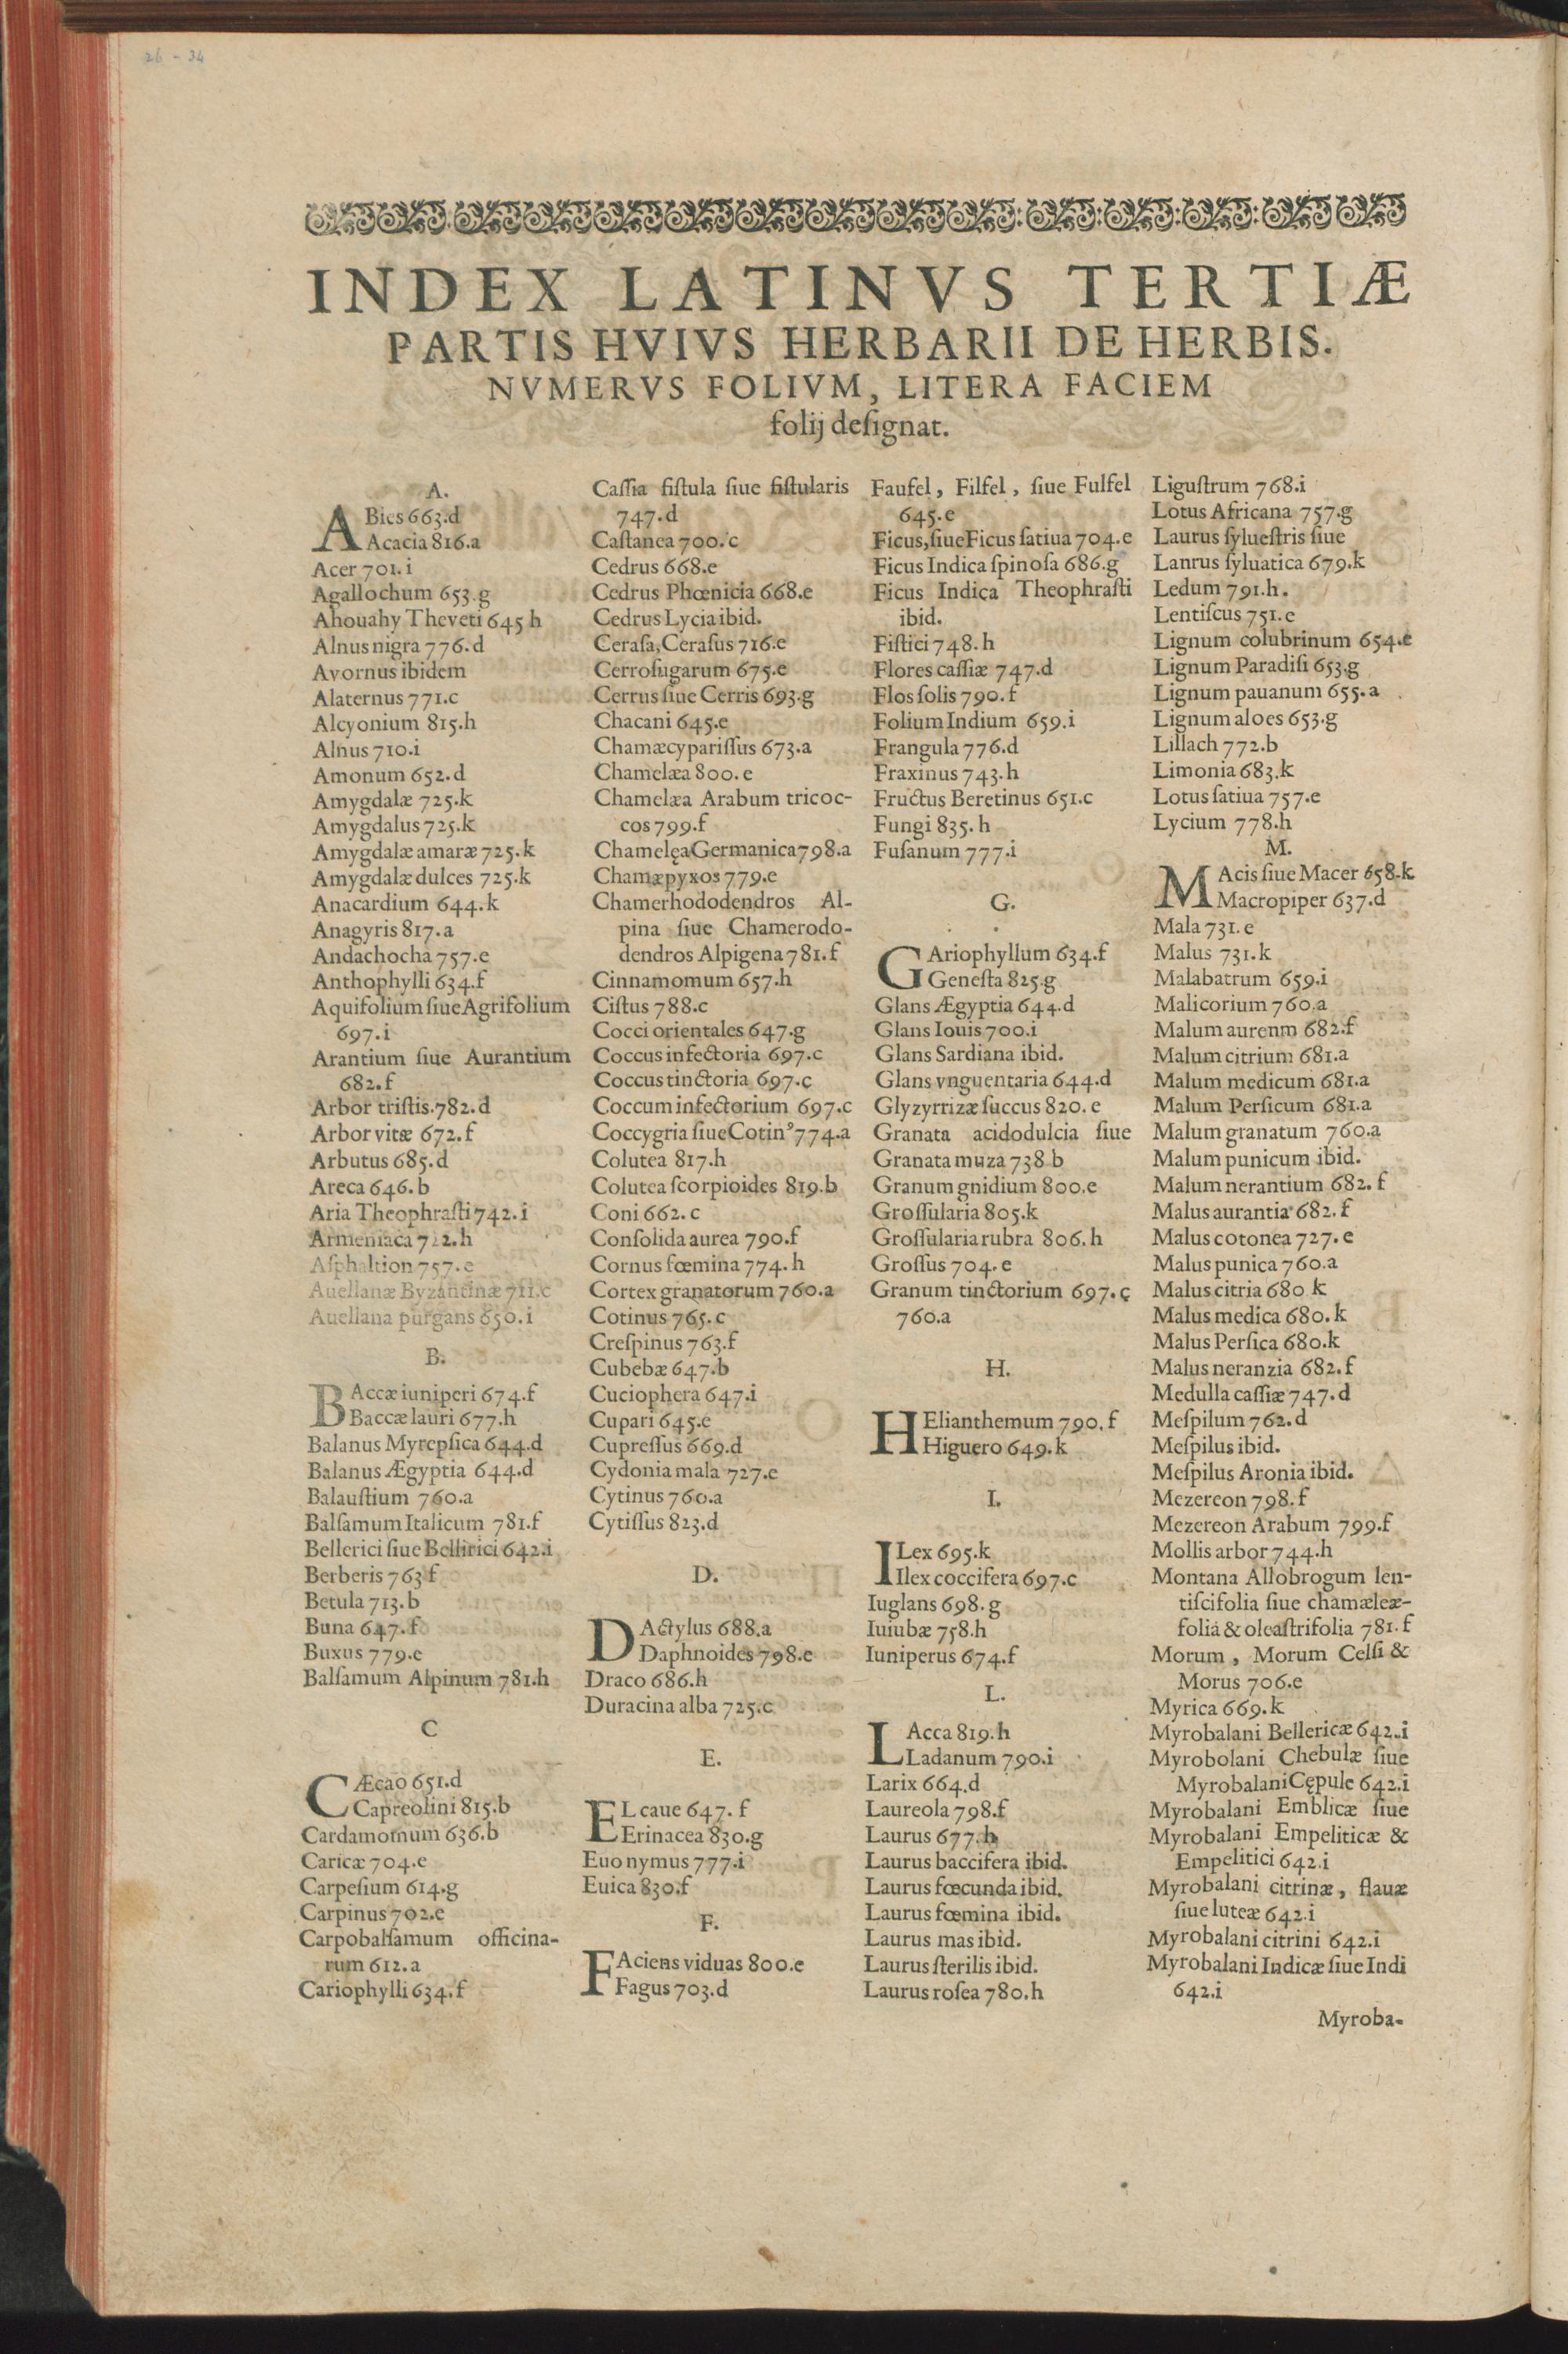 26 - 34
INDEX LATINVS TERTIÆ
PARTIS HVIVS HERBARII DE HERBIS.
NVMERVS FOLIVM, LITERA FACIEM
folij deſignat.
A.
ABies 663.d
Acacia 816.a
Acer 701.i
Agallochum 653.g
Ahouahy Theveti 645 h
Alnus nigra 776.d
Avornus ibidem
Alaternus 771.c
Alcyonium 815.h
Alnus 710.i
Amonum 652.d
Amygdalæ 725.k
Amygdalus 725.k
Amygdalæ amaræ 725.k
Amygdalæ dulces 725.k
Anacardium 644.k
Anagyris 817.a
Andachocha 757.e
Anthophylli 634.f
Aquifolium ſiue Agrifolium
697.i
Arantium ſiue Aurantium
682.f
Arbor triſtis.782.d
Arbor vitæ 672.f
Arbutus 685.d
Areca 646.b
Aria Theophraſti 742.i
Armeniaca 712.h
Aſphaltion 757.e
Auellanæ Byzantinæ 711.c
Auellana purgans 850.i
B.
BAccæ iuniperi 674.f
Baccæ lauri 677.h
Balanus Myrepſica 644.d
Balanus Ægyptia 644.d
Balauſtium 760.a
Balſamum Italicum 781.f
Bellerici ſiue Bellirici 642.i
Berberis 763 f
Betula 713.b
Buna 647.f
Buxus 779.e
Balſamum Alpinum 781.h
C
CÆcao 651.d
Capreolini 815.b
Cardamomum 636.b
Caricæ 704.e
Carpeſium 614.g
Carpinus 702.e
Carpobalſamum officina-
rum 612.a
Cariophylli 634.f
Caſſia fiſtula ſiue fiſtularis
747.d
Caſtanea 700.c
Cedrus 668.e
Cedrus Phœnicia 668.e
Cedrus Lycia ibid.
Ceraſa, Ceraſus 716.e
Cerroſugarum 675.e
Cerrus ſiue Cerris 693.g
Chacani 645.e
Chamæcypariſſus 673.a
Chamelæa 800.e
Chamelæa Arabum tricoc-
cos 799.f
Chamelęa Germanica 798.a
Chamæpyxos 779.e
Chamerhododendros Al-
pina ſiue Chamerodo-
dendros Alpigena 781.f
Cinnamomum 657.h
Ciſtus 788.c
Cocci orientales 647.g
Coccus infectoria 697.c
Coccus tinctoria 697.c
Coccum infectorium 697.c
Coccygria ſiue Cotinꝰ 774.a
Colutea 817.h
Colutea ſcorpioides 819.b
Coni 662.c
Conſolida aurea 790.f
Cornus fœmina 774.h
Cortex granatorum 760.a
Cotinus 765.c
Creſpinus 763.f
Cubebæ 647.b
Cuciophera 647.i
Cupari 645.e
Cupreſſus 669.d
Cydonia mala 727.e
Cytinus 760.a
Cytiſſus 823.d
D.
DActylus 688.a
Daphnoides 798.e
Draco 686.h
Duracina alba 725.c
E.
ELcaue 647.f
Erinacea 830.g
Euo nymus 777.i
Euica 830.f
F.
FAciens viduas 800.e
Fagus 703.d
Faufel, Filfel, ſiue Fulfel
645.e
Ficus, ſiue Ficus ſatiua 704.e
Ficus Indica ſpinoſa 686.g
Ficus Indica Theophraſti
ibid.
Fiſtici 748.h
Flores caſſiæ 747.d
Flos ſolis 790.f
Folium Indium 659.i
Frangula 776.d
Fraxinus 743.h
Fructus Beretinus 651.c
Fungi 835.h
Fuſanum 777.i
G.
GAriophyllum 634.f
Geneſta 825.g
Glans Ægyptia 644.d
Glans Iouis 700.i
Glans Sardiana ibid.
Glans vnguentaria 644.d
Glyzyrrizæ ſuccus 820.e
Granata acidodulcia ſiue
Granata muza 738 b
Granum gnidium 800.e
Groſſularia 805.k
Groſſularia rubra 806.h
Groſſus 704.e
Granum tinctorium 697.c
760.a
H.
HElianthemum 790.f
Higuero 649.k
I.
ILex 695.k
Ilex coccifera 697.c
Iuglans 698.g
Iuiubæ 758.h
Iuniperus 674.f
L.
LAcca 819.h
Ladanum 790.i
Larix 664.d
Laureola 798.f
Laurus 677.h
Laurus baccifera ibid.
Laurus fœcunda ibid.
Laurus fœmina ibid.
Laurus mas ibid.
Laurus ſterilis ibid.
Laurus roſea 780.h
Liguſtrum 768.i
Lotus Africana 757.g
Laurus ſylueſtris ſiue
Lanrus ſyluatica 679.k
Ledum 791.h.
Lentiſcus 751.e
Lignum colubrinum 654.e
Lignum Paradiſi 653.g
Lignum pauanum 655.a
Lignum aloes 653.g
Lillach 772.b
Limonia 683.k
Lotus ſatiua 757.e
Lycium 778.h
M.
MAcis ſiue Macer 658.k
Macropiper 637.d
Mala 731.e
Malus 731.k
Malabatrum 659.i
Malicorium 760.a
Malum aurenm 682.f
Malum citrium 681.a
Malum medicum 681.a
Malum Perſicum 681.a
Malum granatum 760.a
Malum punicum ibid.
Malum nerantium 682.f
Malus aurantia 682.f
Malus cotonea 727.e
Malus punica 760.a
Malus citria 680 k
Malus medica 680.k
Malus Perſica 680.k
Malus neranzia 682.f
Medulla caſſiæ 747.d
Meſpilum 762.d
Meſpilus ibid.
Meſpilus Aronia ibid.
Mezereon 798.f
Mezereon Arabum 799.f
Mollis arbor 744.h
Montana Allobrogum len-
tiſcifolia ſiue chamæleæ-
folia & oleaſtrifolia 781.f
Morum, Morum Celſi &
Morus 706.e
Myrica 669.k
Myrobalani Bellericæ 642.i
Myrobolani Chebulæ ſiue
Myrobalani Cępule 642.i
Myrobalani Emblicæ ſiue
Myrobalani Empeliticæ &
Empelitici 642.i
Myrobalani citrinæ, flauæ
ſiue luteæ 642.i
Myrobalani citrini 642.i
Myrobalani Indicæ ſiue Indi
642.i
Myroba-